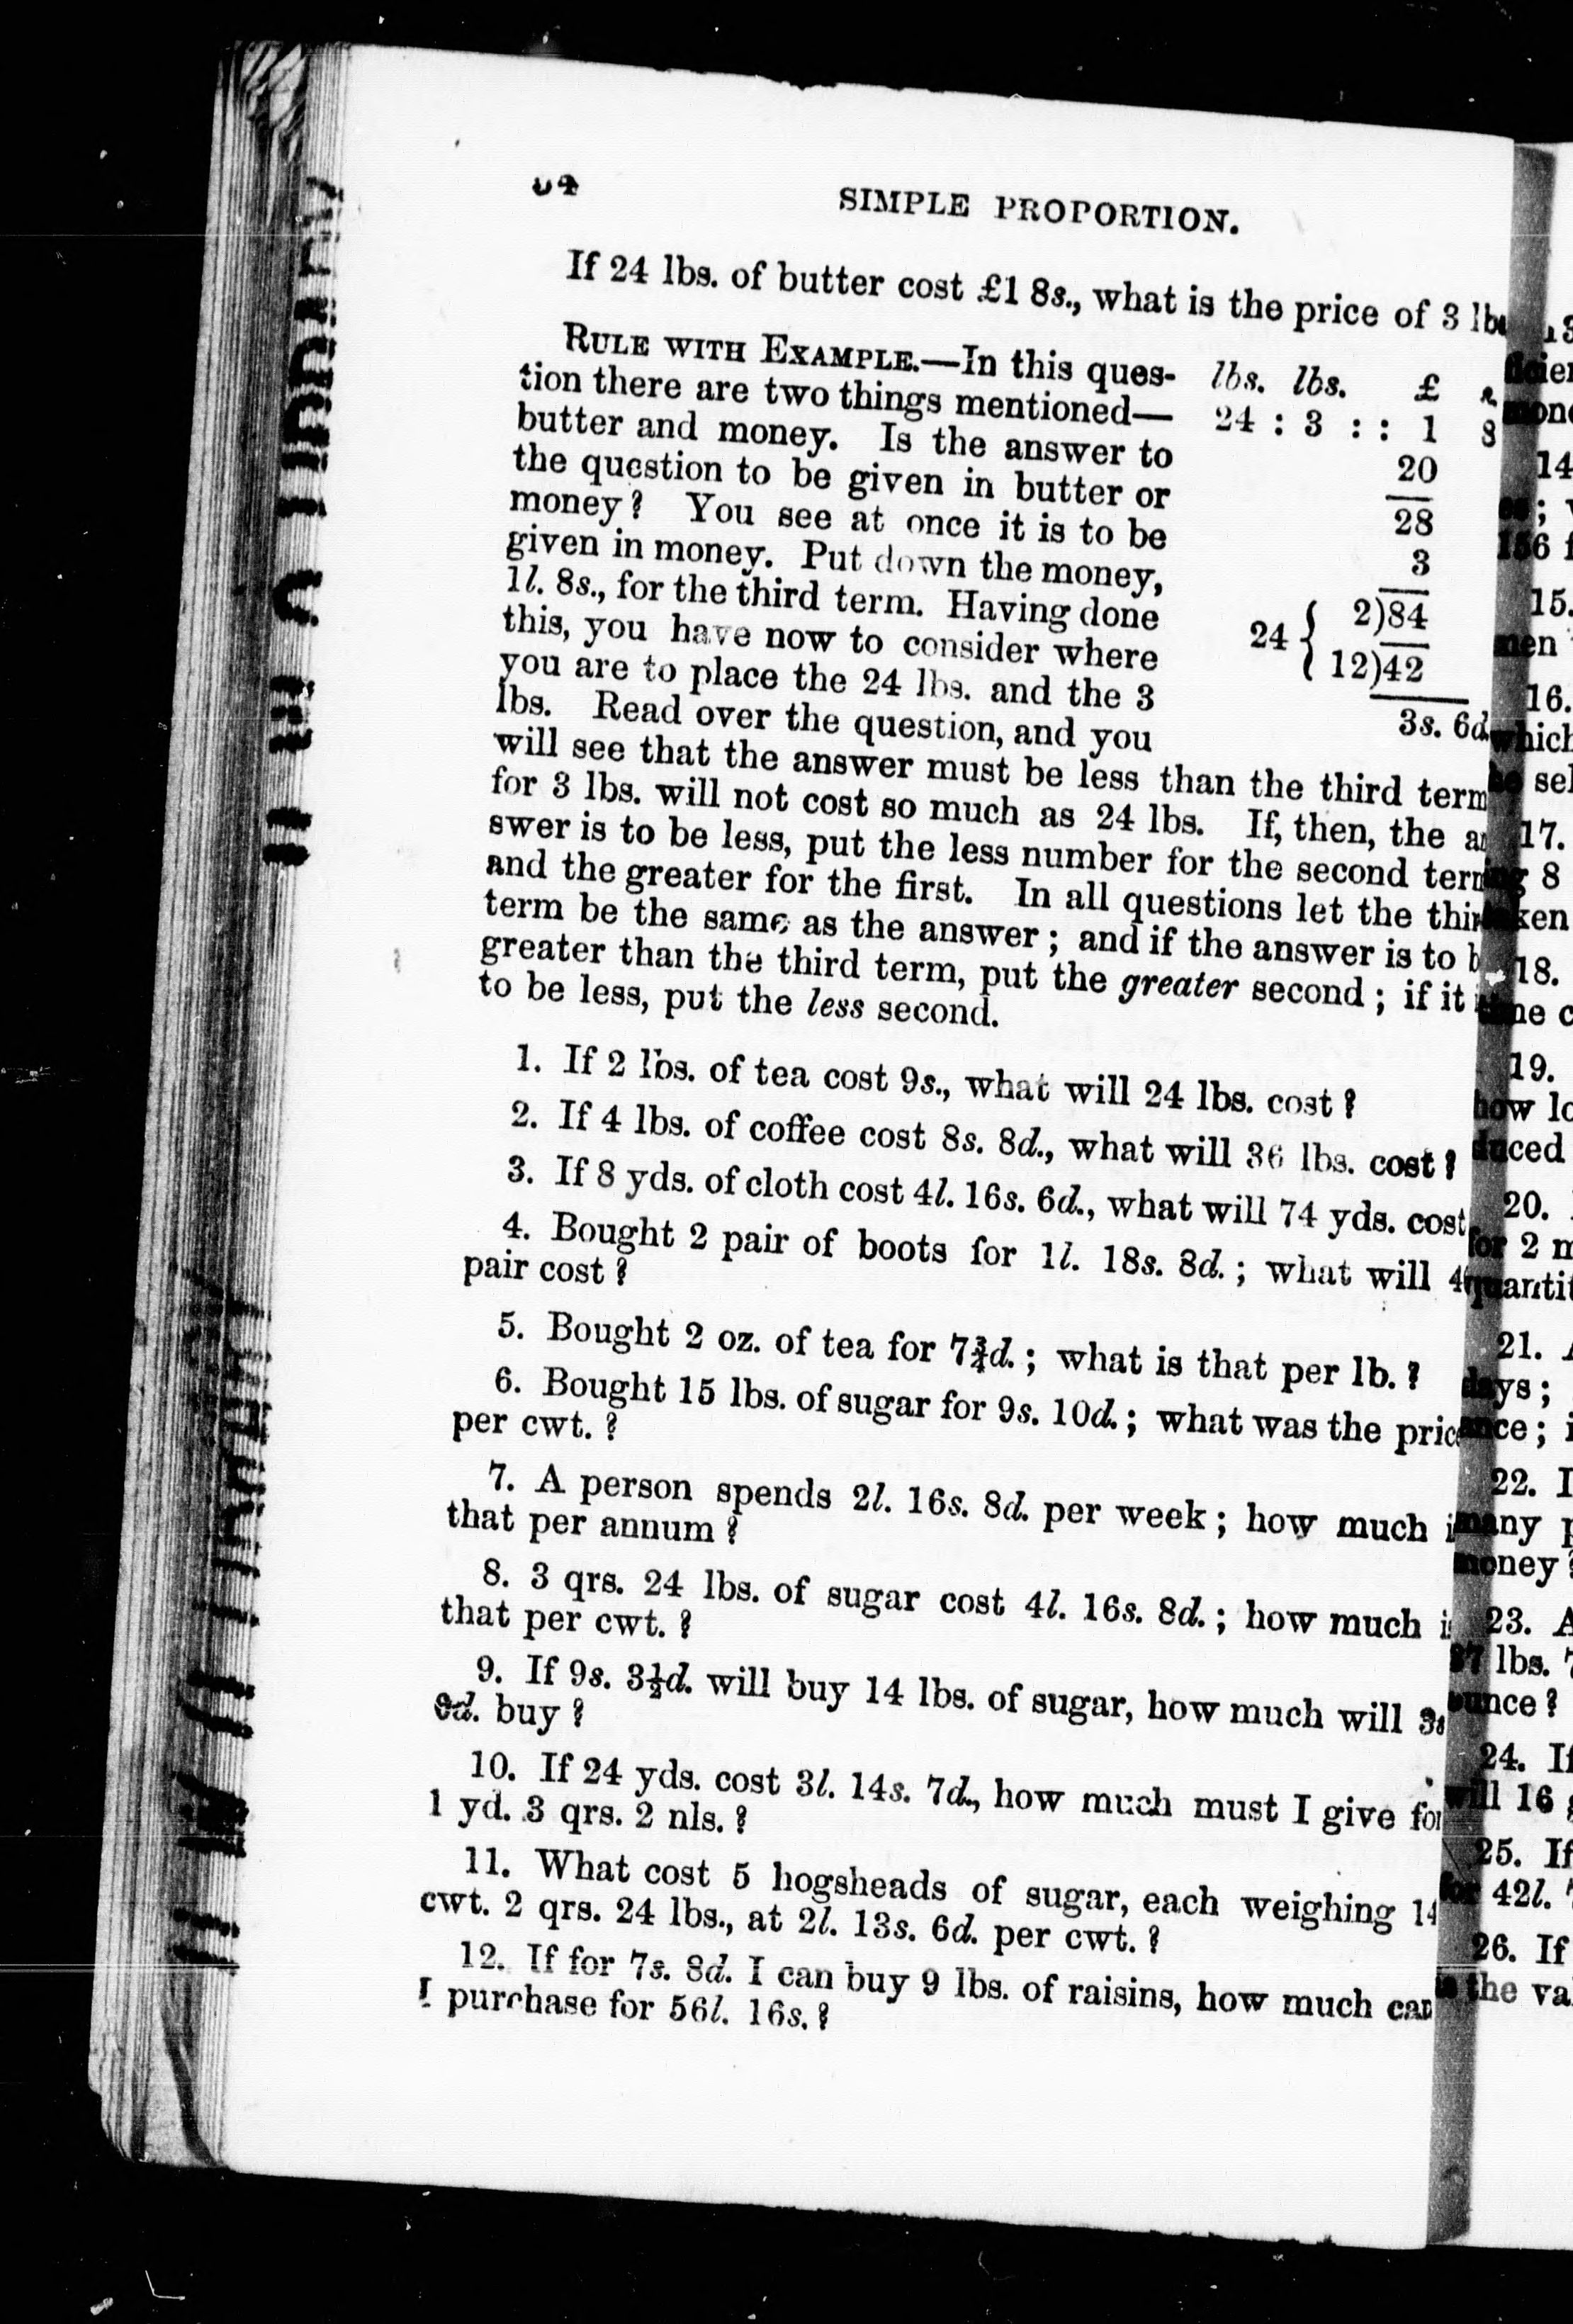 SIMPLE PROPORTION.
If 24 lbs. of butter cost £1 8s., what is the price of 3
RULE WITH EXAMPLE.—In this ques-
tion there are two things mentioned—
butter and money. Is the answer to
the question to be given in butter or
money? You see at once it is to be
given in money. Put down the money,
1l. 8s., for the third term. Having done
this, you have now to consider where
you are to place the 24 lbs. and the 3
lbs. Read over the question, and you
lbs. lbs. £
24 : 3 : : 1 8
20
28
3
24 { 2)84
12)42
3s. 6d.
will see that the answer must be less than the third term
for 3 lbs. will not cost so much as 24 lbs. If, then, the
swer is to be less, put the less number for the second
and the greater for the first. In all questions let the
term be the same as the answer; and if the answer is to
greater than the third term, put the greater second; if it
to be less, put the less second.
1. If 2 lbs. of tea cost 9s., what will 24 lbs. cost?
2. If 4 lbs. of coffee cost 8s. 8d., what will 36 lbs. cost?
3. If 8 yds. of cloth cost 4l. 16s. 6d., what will 74 yds. cost
4. Bought 2 pair of boots for 1l. 18s. 8d.; what will
pair cost?
5. Bought 2 oz. of tea for 7¾d.; what is that per lb.?
6. Bought 15 lbs. of sugar for 9s. 10d.; what was the
per cwt.?
7. A person spends 2l. 16s. 8d. per week; how much
that per annum?
8. 3 qrs. 24 lbs. of sugar cost 4l. 16s. 8d.; how much
that per cwt.?
9. If 9s. 3½d. will buy 14 lbs. of sugar, how much will
9d. buy?
10. If 24 yds. cost 3l. 14s. 7d., how much must I give for
1 yd. 3 qrs. 2 nls.?
11. What cost 5 hogsheads of sugar, each weighing 14
cwt. 2 qrs. 24 lbs., at 2l. 13s. 6d. per cwt.?
12. If for 7s. 8d. I can buy 9 lbs. of raisins, how much can
I purchase for 56l. 16s.?
14
15.
16.
17.
8
18.
19.
20.
2
21.
22.
23.
lbs.
24. If
16
25. If
42l.
26. If
the